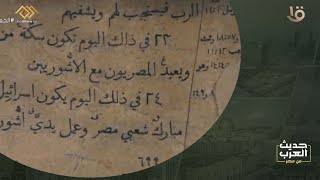 الرب فيستجيب لهم ويشفيهم
٢٣ في ذلك اليوم تكون سكة من
ويعبد المصريون مع الاشوريين
٢٤ في ذلك اليوم يكون اسرائيل
مبارك شعبي مصر وعمل يديَّ أشور
٦٩٩
حديث
العرب
من مصر